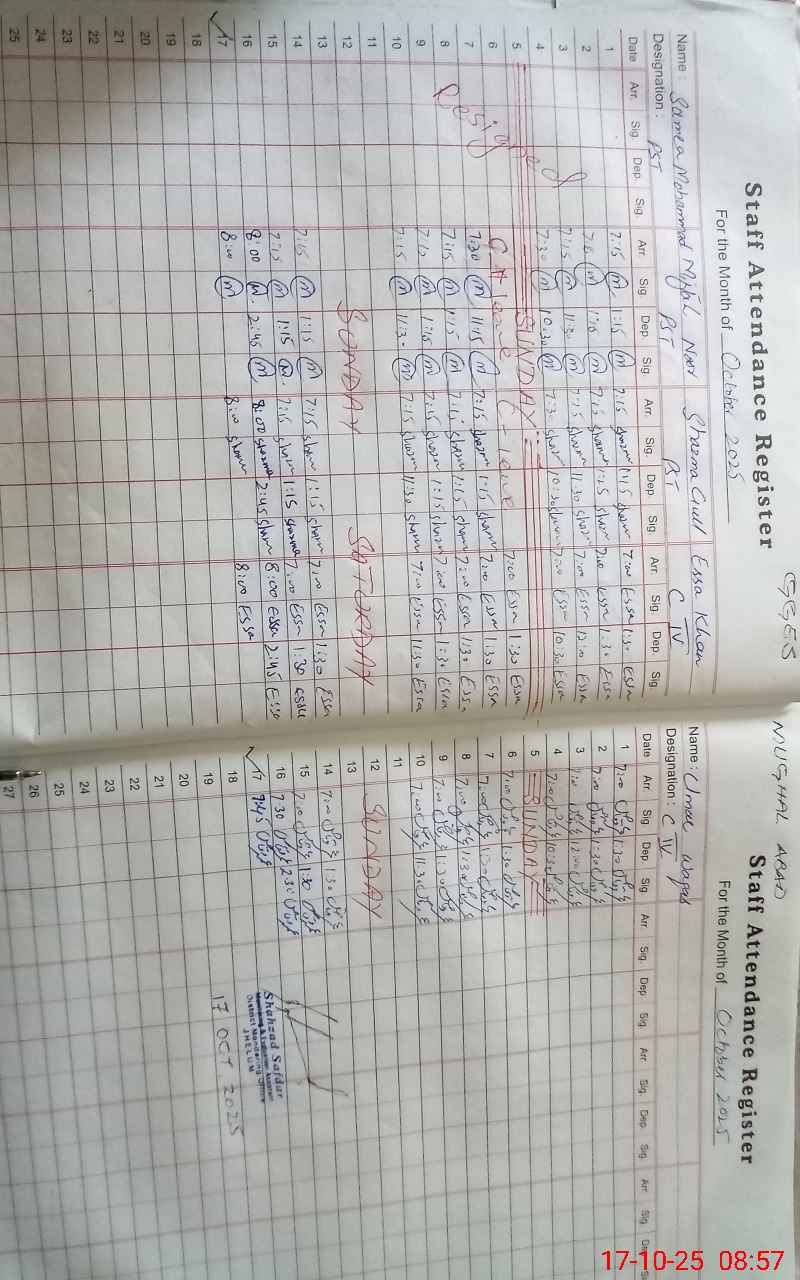 GGES
Staff Attendance Register
For the Month of October 2025
Name: Samea Mohammad Noor Shazma Gull Essa Khan
Designation: PST PST PST C IV
Date Arr. Sig. Dep. Sig. Arr. Sig. Dep. Sig. Arr. Sig. Dep. Sig. Arr. Sig. Dep. Sig.
1 7:15 m 1:15 m 7:15 Shazm 1:15 Shazm 7:00 Essa 1:30 Essa
2 m 1:15 m 7:15 Shazm 1:15 Shazm 7:00 Essa 1:30 Essa
3 7:15 m 11:30 m 7:15 Shazm 11:30 Shazm 7:00 Essa 12:00 Essa
4 7:30 m 10:30 m 7:30 Shazm 10:30 Shazm 7:00 Essa 10:30 Essa
5 SUNDAY
6 leave C-leave 7:00 Essa 1:30 Essa
7 7:30 m 11:15 m 7:15 Shazm 1:15 Shazm 7:00 Essa 1:30 Essa
8 7:15 m 1:15 m 7:15 Shazm 1:15 Shazm 7:00 Essa 1:30 Essa
9 m 1:15 m 7:15 Shazm 1:15 Shazm 7:00 Essa 1:30 Essa
10 7:15 m 11:30 m 7:15 Shazm 11:30 Shazm 7:00 Essa 11:30 Essa
11
12 SUNDAY SATURDAY
13 7:15 m 1:15 m 7:15 Shazm 1:15 Shazm 7:00 Essa 1:30 Essa
14 7:15 m 1:15 m 7:15 Shazm 1:15 Shazma 7:00 Essa 1:30 Essa
15 8:00 m 2:45 m 8:00 Shazma 2:45 Shazm 8:00 Essa 2:45 Essa
16 8:00 m 8:00 Shazm 8:00 Essa
17
18
19
20
21
22
23
24
25
Resigned
MUGHAL ABAD
Staff Attendance Register
For the Month of October 2025
Name: Umar Waqas
Designation: C IV
Date Arr. Sig. Dep. Sig. Arr. Sig. Dep. Sig. Arr. Sig. Dep. Sig. Arr. Sig. Dep. S
1 7:00 1:30
2 7:00 1:30
3 7:00 12:00
4 7:00 10:30
5 SUNDAY
6 7:00 1:30
7 7:00 1:30
8 7:00 1:30
9 7:00 1:30
10 7:00 11:30
11
12 SUNDAY
13
14 7:00 1:30
15 7:00 1:30
16 7:30 2:30
17 7:45
18
19
20
21
22
23
24
25
26
27
Shahzad Safdar
Monitoring & Evaluation Assistant
District Monitoring Office
JHELUM
17 OCT 2025
17-10-25 08:57